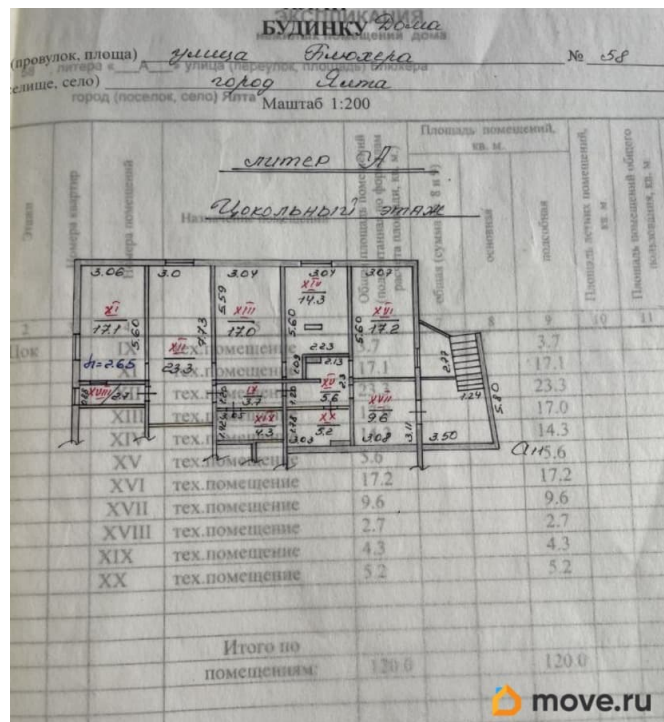 ЭКСПЛИКАЦИЯ
БУДИНКУ Дома
(провулок, площа) улица Блюхера № 58
литера «А» улица (переулок, площадь) Блюхера
селище, село) город Ялта
город (поселок, село) Ялта
Маштаб 1:200
Площадь помещений, кв. м.
литер А
Цокольный этаж
Этажи
Номера квартир
Номера помещений
Назначение помещений
общая (сумма 8 и 9)
основная
подсобная
Площадь летних помещений, кв. м
Площадь помещений общего пользования, кв. м
3.06 3.0 3.04 3.04 3.07
XI 17.1 5.60
XII 23.3 7.73
XIII 17.0 5.59
XIV 14.3 5.60
XVI 17.2 5.60
h=2.65
2.23
2.13
2.77
1.24
5.80
XVIII 2.7
IX 3.7
XV 5.6
XVII 9.6
XIX 4.3
XX 5.2
3.03 3.08 3.11 3.50
2 8 9 10 11
Цок IX тех.помещение 3.7 3.7
XI тех.помещение 17.1 17.1
XII 23.3 23.3
XIII 17.0
XIV 14.3
XV тех.помещение 5.6 5.6
XVI тех.помещение 17.2 17.2
XVII тех.помещение 9.6 9.6
XVIII тех.помещение 2.7 2.7
XIX тех.помещение 4.3 4.3
XX тех.помещение 5.2 5.2
Итого по
помещениям: 120.0 120.0
move.ru